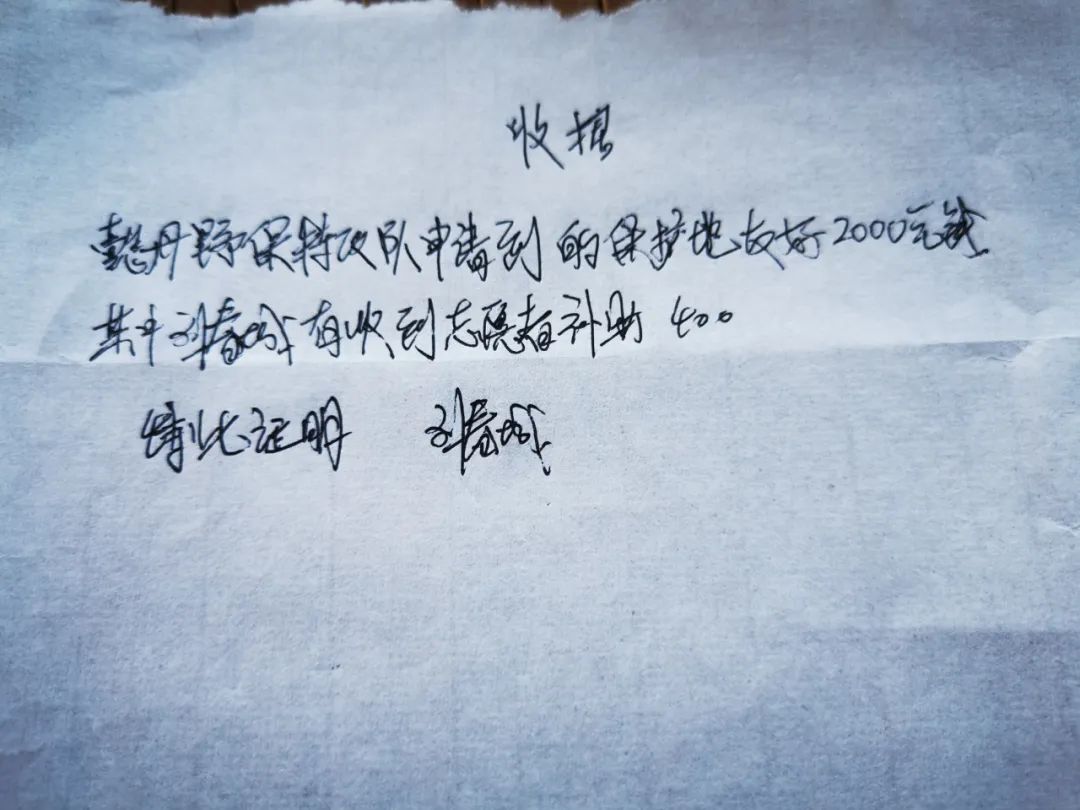 收据
懿丹野保特攻队申请到的保护地友好2000元钱
其中刘春城有收到志愿者补助 400
特此证明 刘春城